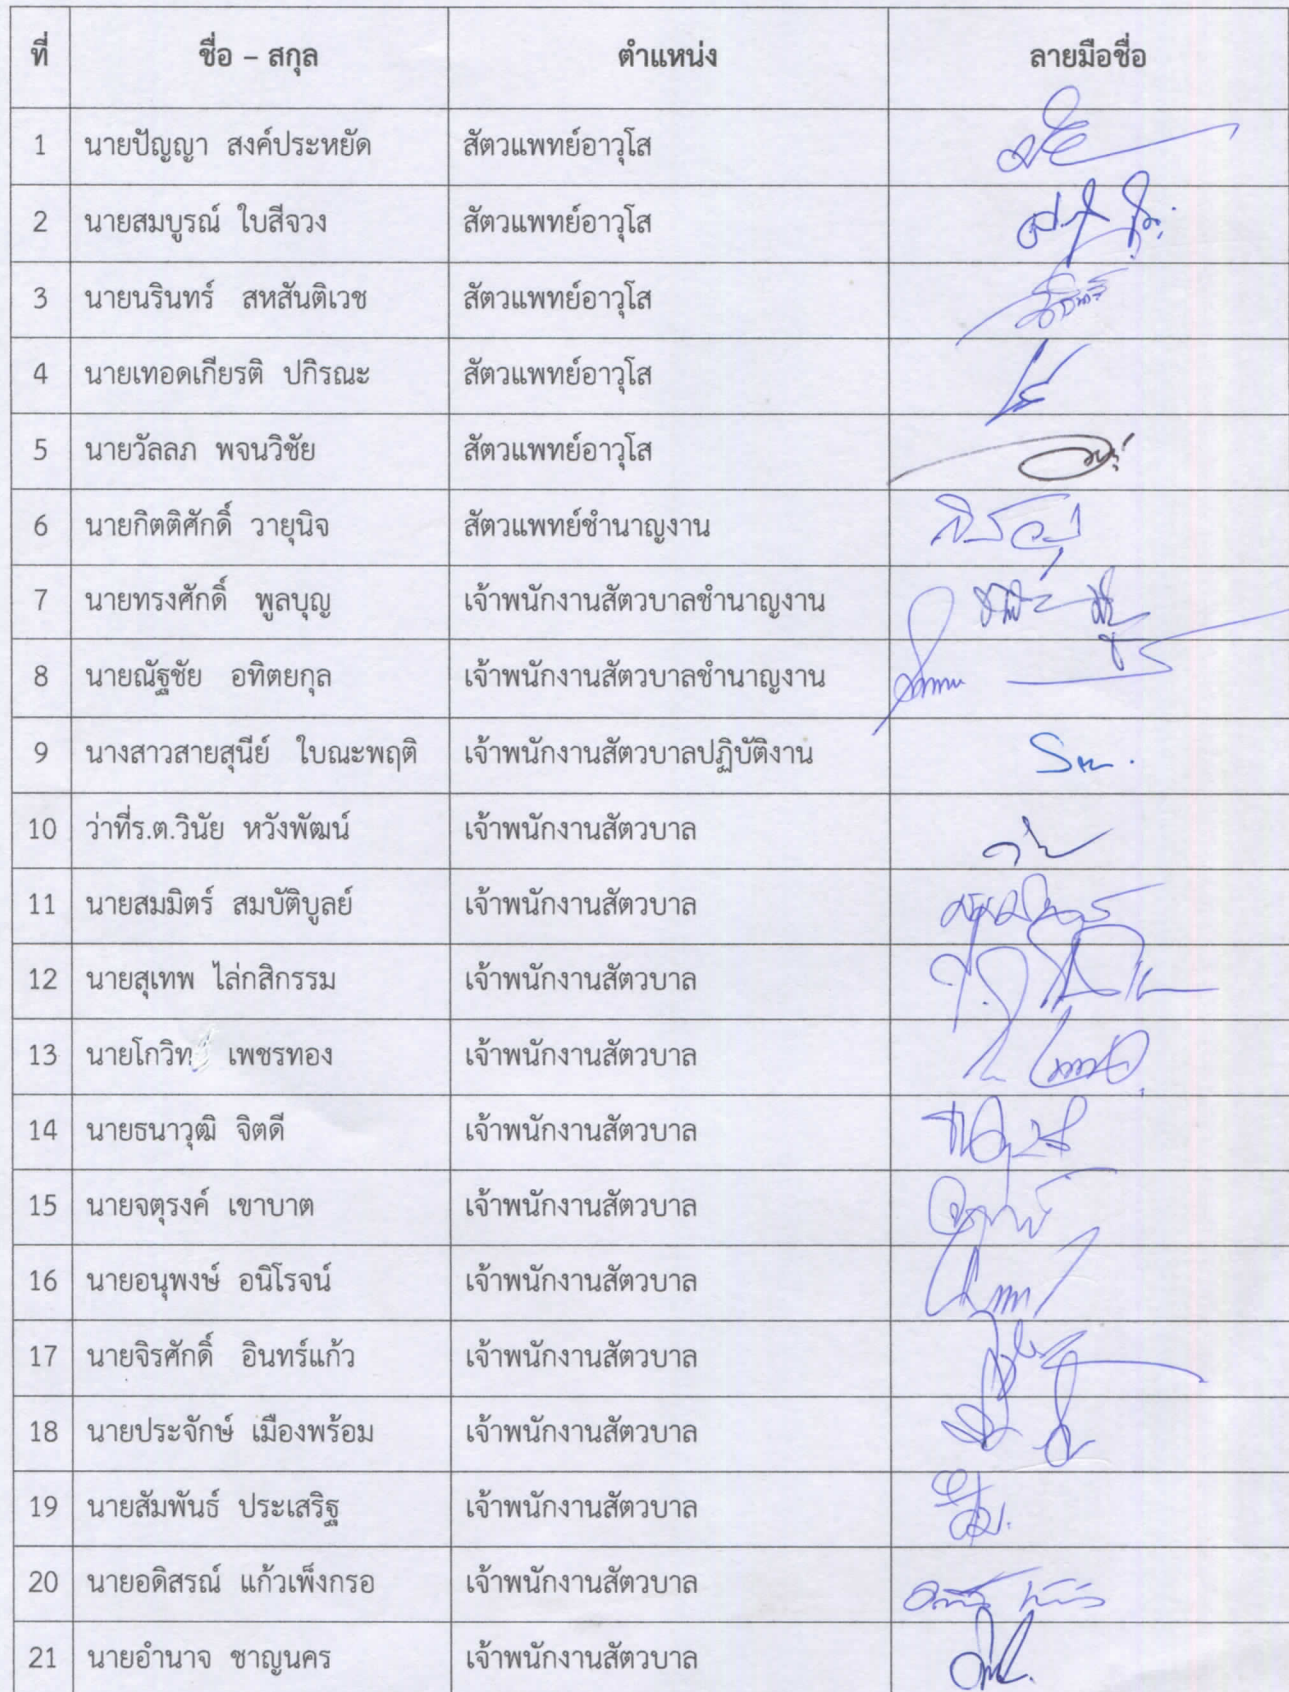 ที่ ชื่อ – สกุล ตำแหน่ง ลายมือชื่อ
1 นายปัญญา สงค์ประหยัด สัตวแพทย์อาวุโส
2 นายสมบูรณ์ ใบสีจวง สัตวแพทย์อาวุโส
3 นายนรินทร์ สหสันติเวช สัตวแพทย์อาวุโส
4 นายเทอดเกียรติ ปกิรณะ สัตวแพทย์อาวุโส
5 นายวัลลภ พจนวิชัย สัตวแพทย์อาวุโส
6 นายกิตติศักดิ์ วายุนิจ สัตวแพทย์ชำนาญงาน
7 นายทรงศักดิ์ พูลบุญ เจ้าพนักงานสัตวบาลชำนาญงาน
8 นายณัฐชัย อทิตยกุล เจ้าพนักงานสัตวบาลชำนาญงาน
9 นางสาวสายสุนีย์ ใบณะพฤติ เจ้าพนักงานสัตวบาลปฏิบัติงาน
10 ว่าที่ร.ต.วินัย หวังพัฒน์ เจ้าพนักงานสัตวบาล
11 นายสมมิตร์ สมบัติบูลย์ เจ้าพนักงานสัตวบาล
12 นายสุเทพ ไล่กสิกรรม เจ้าพนักงานสัตวบาล
13 นายโกวิท เพชรทอง เจ้าพนักงานสัตวบาล
14 นายธนาวุฒิ จิตดี เจ้าพนักงานสัตวบาล
15 นายจตุรงค์ เขาบาต เจ้าพนักงานสัตวบาล
16 นายอนุพงษ์ อนิโรจน์ เจ้าพนักงานสัตวบาล
17 นายจิรศักดิ์ อินทร์แก้ว เจ้าพนักงานสัตวบาล
18 นายประจักษ์ เมืองพร้อม เจ้าพนักงานสัตวบาล
19 นายสัมพันธ์ ประเสริฐ เจ้าพนักงานสัตวบาล
20 นายอดิสรณ์ แก้วเพ็งกรอ เจ้าพนักงานสัตวบาล
21 นายอำนาจ ชาญนคร เจ้าพนักงานสัตวบาล